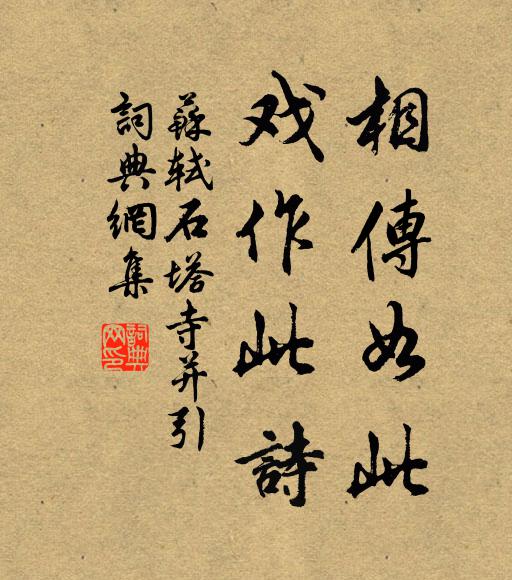 相傳如此
戏作此詩
蘇軾石塔寺并引
詞典網集
詞典網印